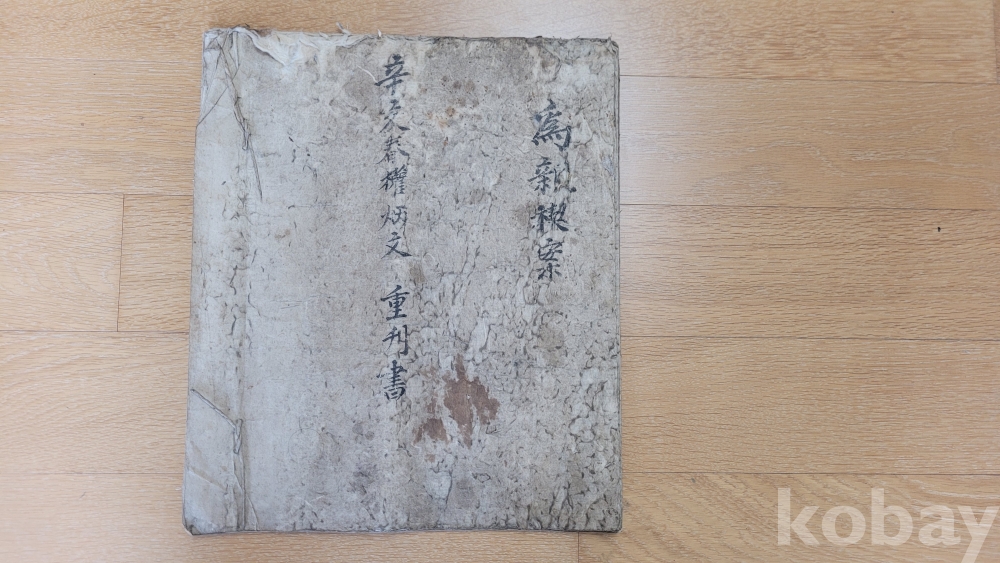 爲親禊案
辛亥春權炳文 重刊書
kobay